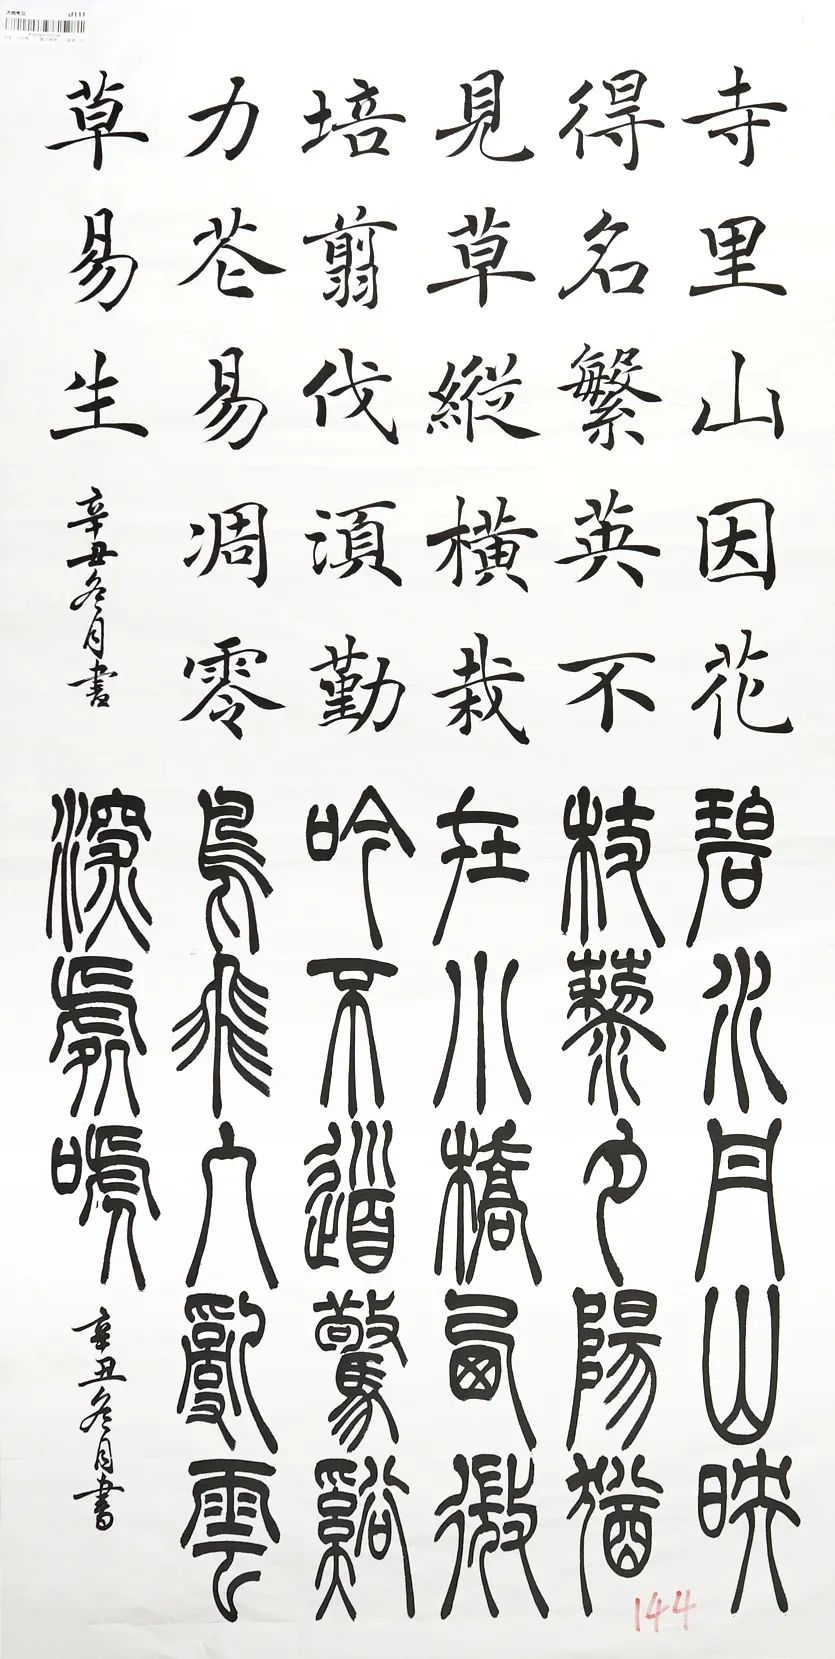 寺里山因花
得名繁英不
見草縱橫栽
培翦伐須勤
力花易凋零
草易生
辛丑冬月書
碧水丹山映
杖藜夕陽猶
在小橋西微
吟不道驚谿
鳥飛入亂雲
深處嗁
辛丑冬月書
144